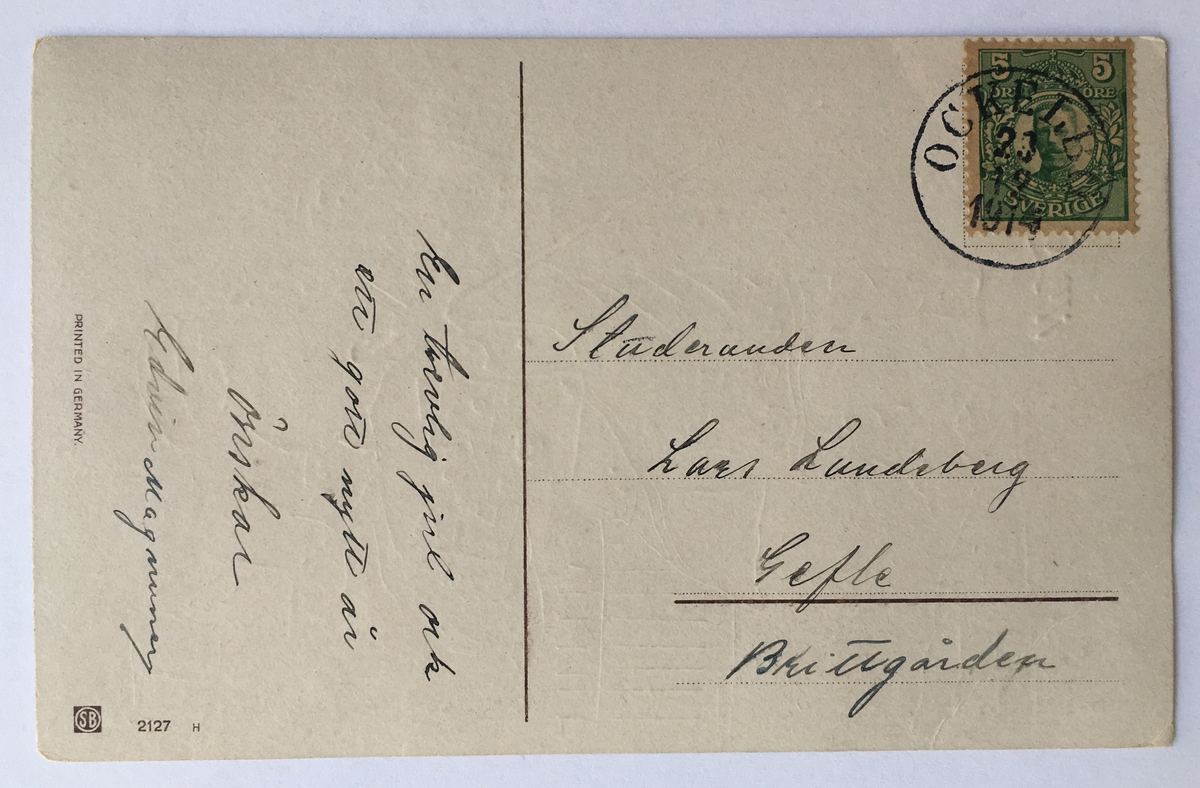 En trevlig jul ock
ett gott nytt år
önskar
Edvin Magnusson
PRINTED IN GERMANY.
SB
2127 H
5 5
ÖRE ÖRE
SVERIGE
OCKELB
23
12
1914
Studeranden
Lars Lundsberg
Gefle
Brittgården